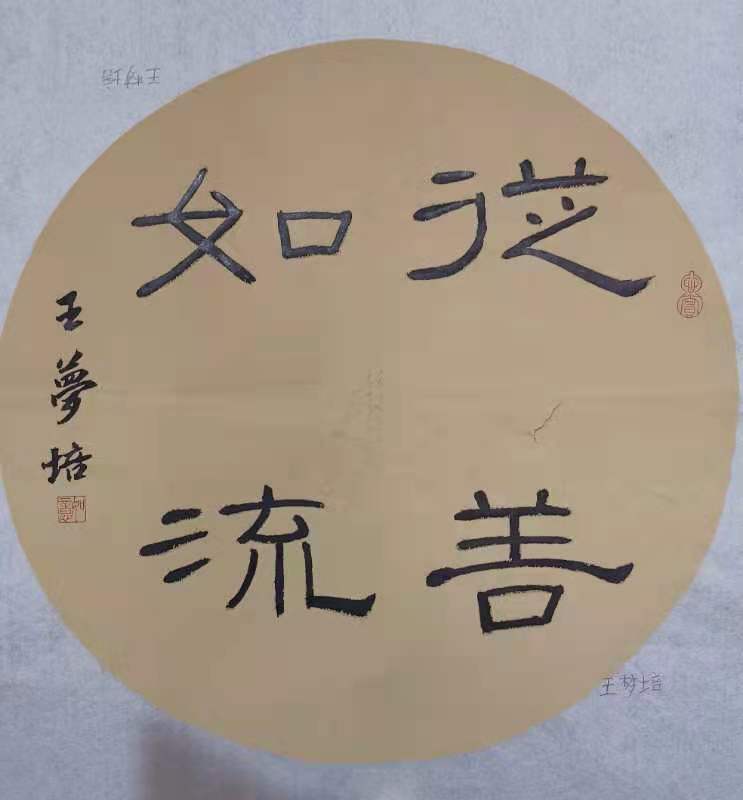 從善
如流
王夢培
王梦培
王梦培